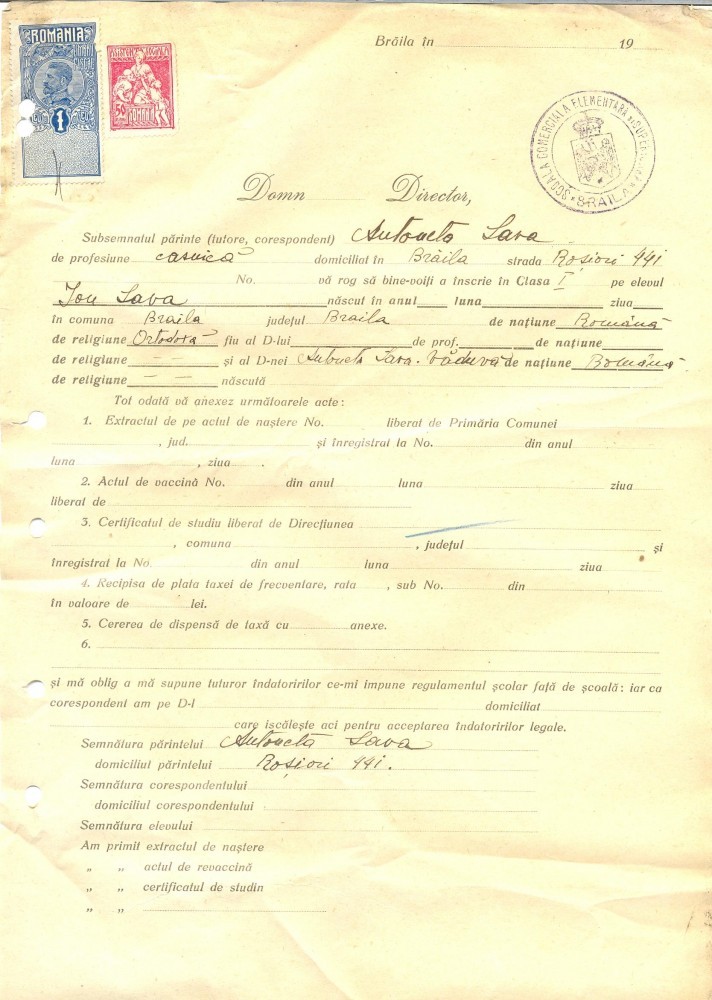 ROMANIA
TIMBRU FISCAL
1
ASISTENȚA SOCIALA
50
ROMANIA
Brăila în 19
ȘCOALA COMERCIALA ELEMENTARA ȘI SUPERIOARA
BRAILA
Domn Director,
Subsemnatul părinte (tutore, corespondent) Antoneta Sava
de profesiune casnică domiciliat în Brăila strada Roșiori 441
No. vă rog să bine-voiți a înscrie în Clasa I pe elevul
Ion Sava născut în anul luna ziua
în comuna Braila județul Braila de națiune Română
de religiune Ortodoxă fiu al D-lui de prof. de națiune
de religiune — — și al D-nei Antoneta Sava. Văduvă de națiune Română
de religiune — — născută
Tot odată vă anexez următoarele acte :
1. Extractul de pe actul de naștere No. liberat de Primăria Comunei
, jud. și înregistrat la No. din anul
luna , ziua .
2. Actul de vaccină No. din anul luna ziua
liberat de
3. Certificatul de studiu liberat de Direcțiunea
, comuna , județul și
înregistrat la No. din anul luna ziua
4. Recipisa de plata taxei de frecventare, rata , sub No. din
în valoare de lei.
5. Cererea de dispensă de taxă cu anexe.
6.
și mă oblig a mă supune tuturor îndatoririlor ce-mi impune regulamentul școlar față de școală : iar ca
corespondent am pe D-l domiciliat
care iscălește aci pentru acceptarea îndatoririlor legale.
Semnătura părintelui Antoneta Sava
domiciliul părintelui Roșiori 441.
Semnătura corespondentului
domiciliul corespondentului
Semnătura elevului
Am primit extractul de naștere
„ „ actul de revaccină
„ „ certificatul de studin
„ „